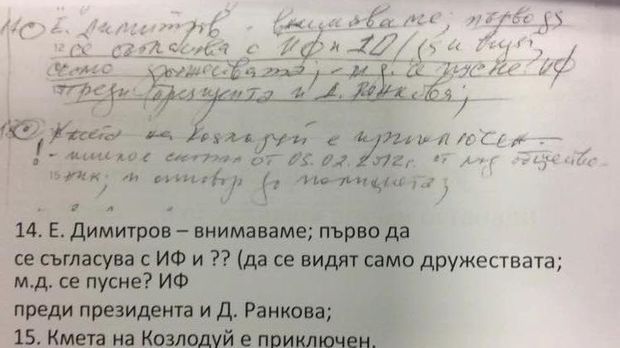 14. Е. Димитров - внимаваме; първо да
се съгласува с ИФ и
само дружествата; м.д. се пусне? ИФ
преди президента и Д. Ранкова;
15. Кмета на Козлодуй е приключен.
! - от 03.02.2012г. от
и отговор до полицията;
14. Е. Димитров – внимаваме; първо да
се съгласува с ИФ и ?? (да се видят само дружествата;
м.д. се пусне? ИФ
преди президента и Д. Ранкова;
15. Кмета на Козлодуй е приключен.